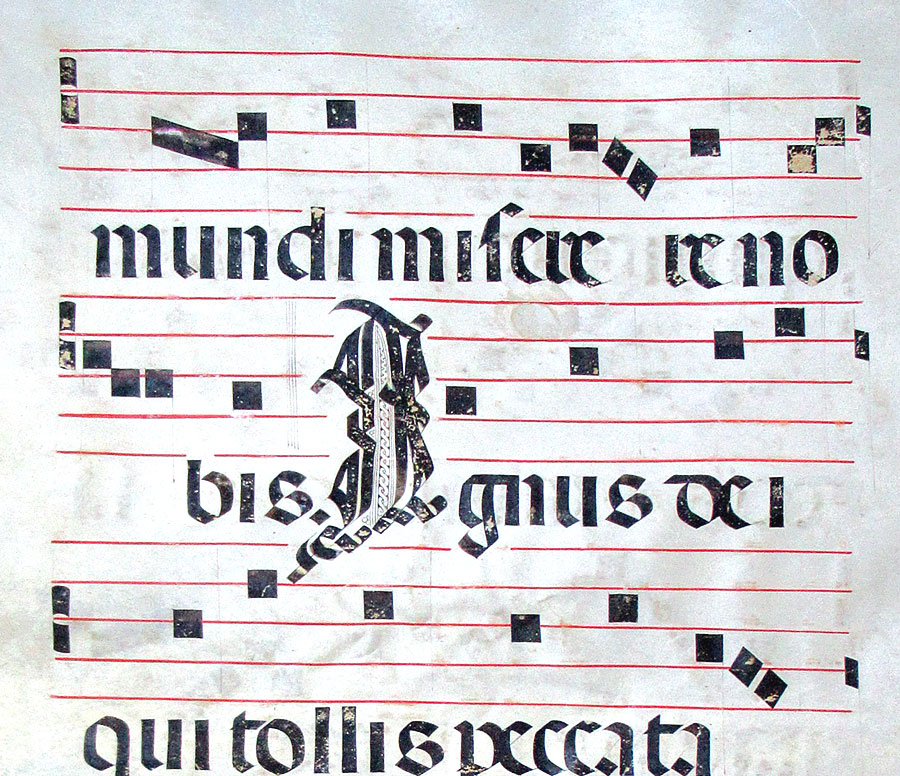 mundi misere re no
bis. Agnus dei
qui tollis peccata